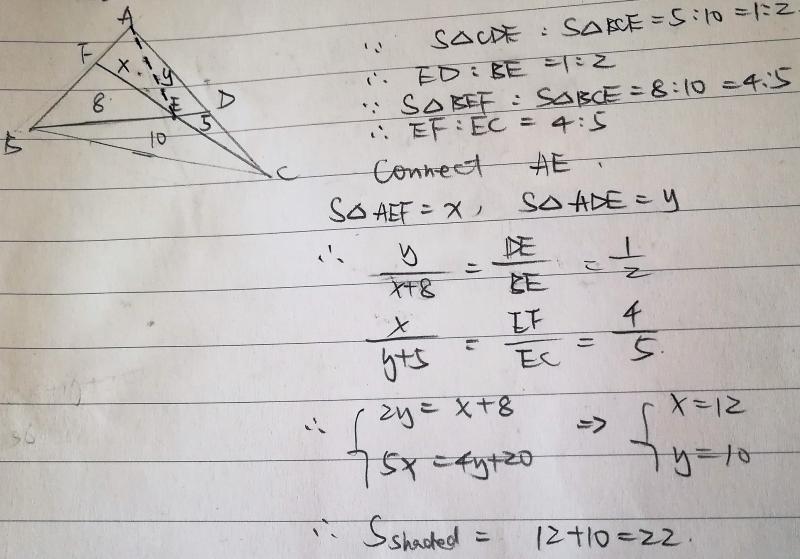 A
F
x
y
8
E
D
5
B
10
C
∵ S△CDE : S△BCE = 5:10 = 1:2
∴ ED : BE = 1:2
∵ S△BEF : S△BCE = 8:10 = 4:5
∴ EF : EC = 4:5
Connect AE.
S△AEF = x, S△ADE = y
∴ y/(x+8) = DE/BE = 1/2
x/(y+5) = EF/EC = 4/5.
∴ { 2y = x+8 => { x=12
5x = 4y+20 y=10
∴ S shaded = 12+10=22.